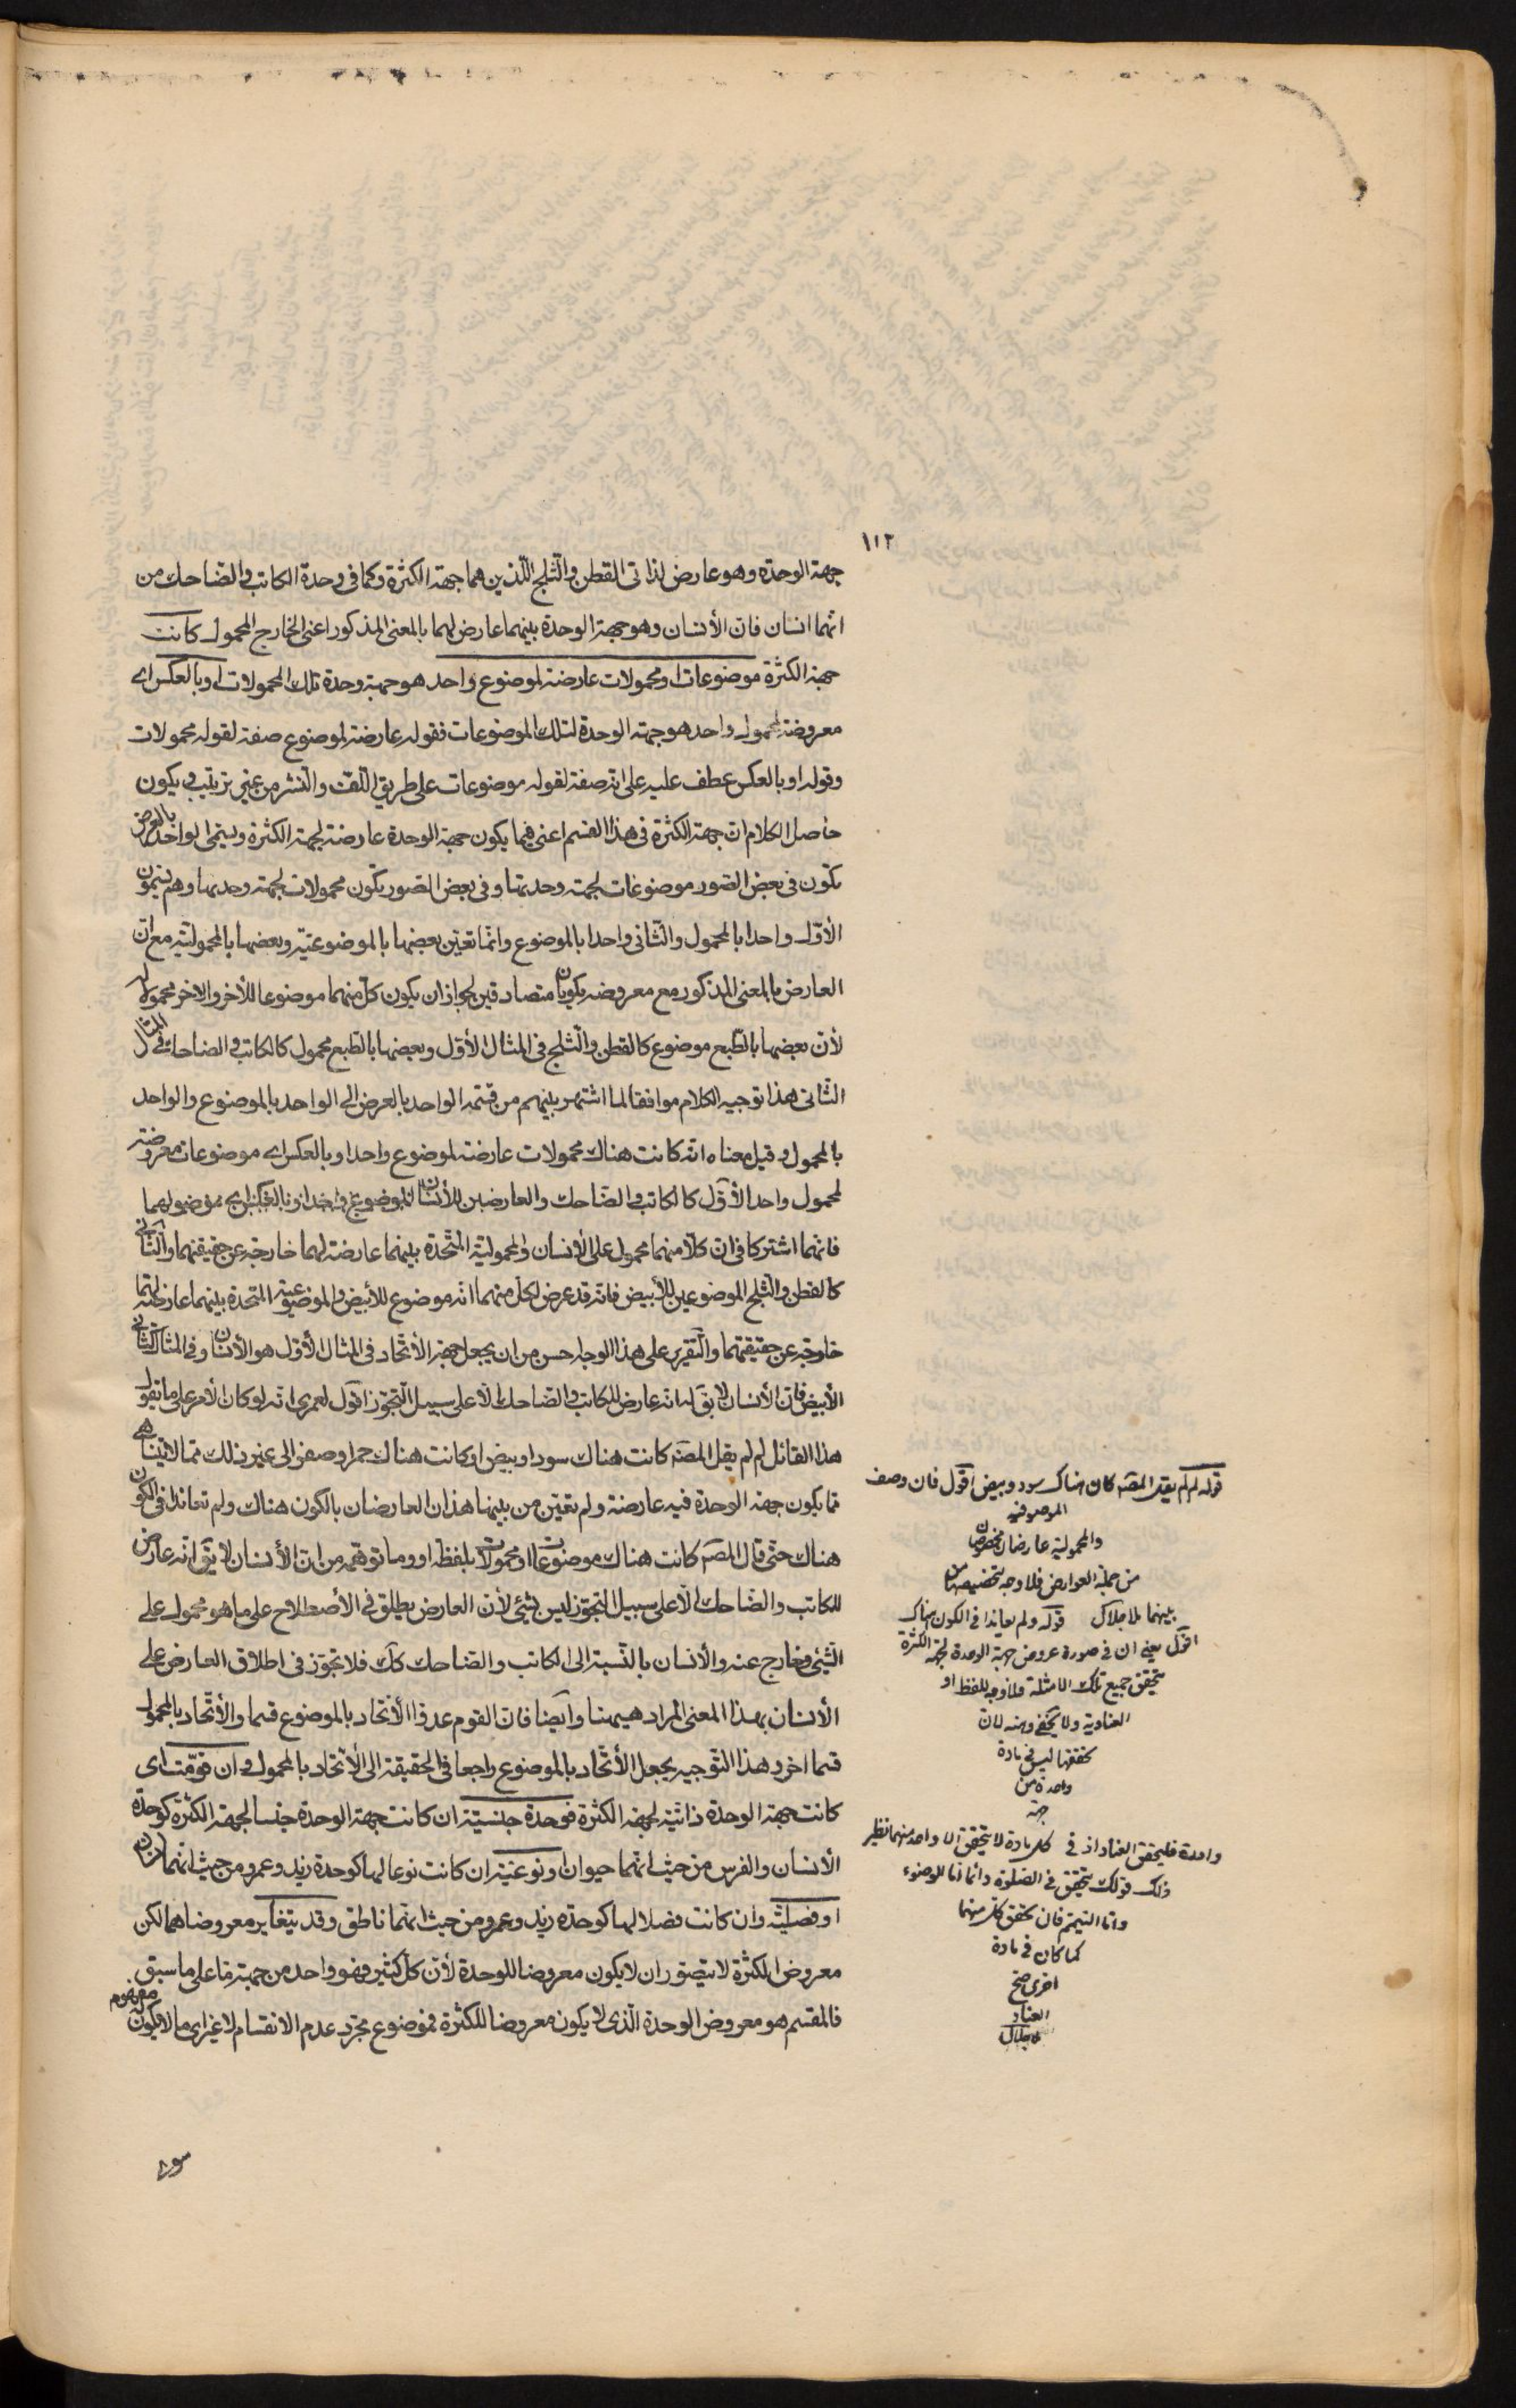 ١١٢
جهة الوحدة وهو عارض لذاتى القطن والثلج اللذين هما جهة الكثرة وكما فى وحدة الكاتب والضاحك من
انهما انسان فان الأنسان وهو جهة الوحدة بينهما عارض لهما بالمعنى المذكور اعنى الخارج المحمول كانت
جهة الكثرة موضوعات او محمولات عارضة لموضوع واحد هو جهة وحدة تلك المحمولات او بالعكس اى
معروضة لمحمول واحد هو جهة الوحدة لتلك الموضوعات فقوله عارضة لموضوع صفة لقوله محمولات
وقوله او بالعكس عطف عليه على انه صفة لقوله موضوعات على طريق اللف والنشر من غير ترتيب ويكون
حاصل الكلام ان جهة الكثرة فى هذا القسم اعنى فيما يكون جهة الوحدة عارضة لجهة الكثرة ويسمى الواحد بالعرض
تكون فى بعض الصور موضوعات لجهة وحدتها وفى بعض الصور تكون محمولات لجهة وحدتها وهم يسمون
الأول واحدا بالمحمول والثانى واحدا بالموضوع وانما تعين بعضها بالموضوعية وبعضها بالمحمولية مع ان
العارض بالمعنى المذكور مع معروضه يكونان متصادقين لجواز ان يكون كل منهما موضوعا للأخر والاخر محمولا له
لأن بعضها بالطبع موضوع كالقطن والثلج فى المثال الأول وبعضها بالطبع محمول كالكاتب والضاحك فى المثال
الثانى هذا توجيه الكلام موافقا لما اشتهر بينهم من قسمة الواحد بالعرض الى الواحد بالموضوع والواحد
بالمحمول وقيل معناه انه كانت هناك محمولات عارضة لموضوع واحد او بالعكس اى موضوعات معروضة
لمحمول واحد الأول كالكاتب والضاحك والعارضين للأنسان لموضوع واحد او بالعكس اى
فانهما اشتركا فى ان كلا منهما محمول على الأنسان والمحمولية المتحدة بينهما عارضة لهما خارجة عن حقيقتهما والثانى
كالقطن والثلج الموضوعين للأبيض فانه قد عرض لكل منهما انه موضوع للأبيض والموضوعية المتحدة بينهما عارضة لهما
خارجة عن حقيقتهما والتقرير على هذا الوجه احسن من ان يجعل جهة الأتحاد فى المثال الأول هو الأنسان وفى المثال الثانى
الأبيض فان الأنسان لا يق انه عارض للكاتب والضاحك الا على سبيل التجوز اقول لعمرى انه لو كان الأمر على ما يقول
هذا القائل لم لم يقل المصه كانت هناك سود او بيض او كانت هناك حمر او صفر الى غير ذلك مما لا يتناهى
مما يكون جهة الوحدة فيه عارضة ولم تعين من بينها هذان العارضان بالكون هناك ولم تعاندا فى الكون
هناك حتى قال المصه كانت هناك موضوعات او محمولات بلفظة او وما توهمه من ان الأنسان لا يق انه عارض
للكاتب والضاحك الا على سبيل التجوز ليس بشئ لأن العارض يطلق فى الأصطلاح على ما هو محمول على
الشئ وخارج عنه والأنسان بالنسبة الى الكاتب والضاحك كك فلا تجوز فى اطلاق العارض على
الأنسان بهذا المعنى المراد هيهنا وايضا فان القوم عدوا الأتحاد بالموضوع قسما والأتحاد بالمحمول
قسما اخر وهذا التوجيه يجعل الأتحاد بالموضوع راجعا فى الحقيقة الى الأتحاد بالمحمول وان قومت اى
كانت جهة الوحدة ذاتية لجهة الكثرة فوحدة جنسية ان كانت جهة الوحدة جنسا لجهة الكثرة كوحدة
الأنسان والفرس من حيث انهما حيوان او نوعية ان كانت نوعا لها كوحدة زيد وعمرو من حيث انهما انسان
او فصلية وان كانت فصلا لها كوحدة زيد وعمرو من حيث انهما ناطق وقد يتغاير معروضاهما لكن
معروض الكثرة لا يتصور ان لا يكون معروضا للوحدة لأن كل كثير فهو واحد من جهة ما على ما سبق
فالمقسم هو معروض الوحدة الذى لا يكون معروضا للكثرة فموضوع مجرد عدم الانقسام لا غير اى ما لا يكون له مفهوم
سوى
قوله لم لم يقل المصه كان هناك سود وبيض اقول فان وصف
الموضوعية
والمحمولية عارضان مخصوصان
من جملة العوارض فلا وجه لتخصيصهما من
بينهما ملا جلال قوله ولم تعاندا فى الكون هناك
اقول يعنى ان فى صورة عروض جهة الوحدة لجهة الكثرة
يتحقق جميع تلك الامثلة فلا وجه للفظ او
العنادية ولا يخفى وهنه لان
تحققها ليس فى مادة
واحدة من
جهة
واحدة فليتحقق العناد اذ فى كل مادة لا يتحقق الا واحد منهما نظير
ذلك قولك يتحقق فى الصلوة دائما اما الوضوء
واما التيمم فان تحقق كل منهما
كما كان فى مادة
اخرى صح
العناد
ملا جلال